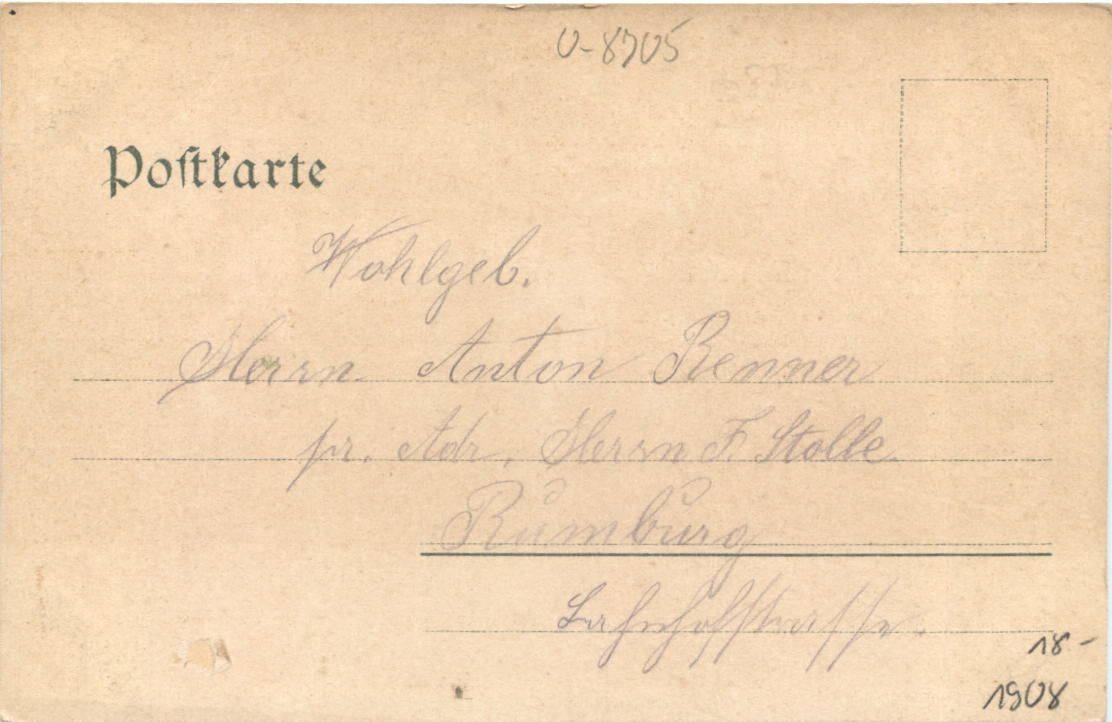 0-8705
Postkarte
Wohlgeb.
Herrn Anton Renner
pr. Adr. Herrn F. Stolle.
Rumburg
Bahnhofstrasse.
18-
1908